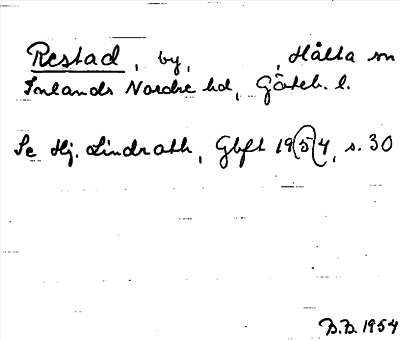 Restad, by, , Hålta sn
Inlands Nordre hd, Göteb. l.
Se Hj. Lindroth, Gbft 19(5)4, s. 30
B.B. 1954